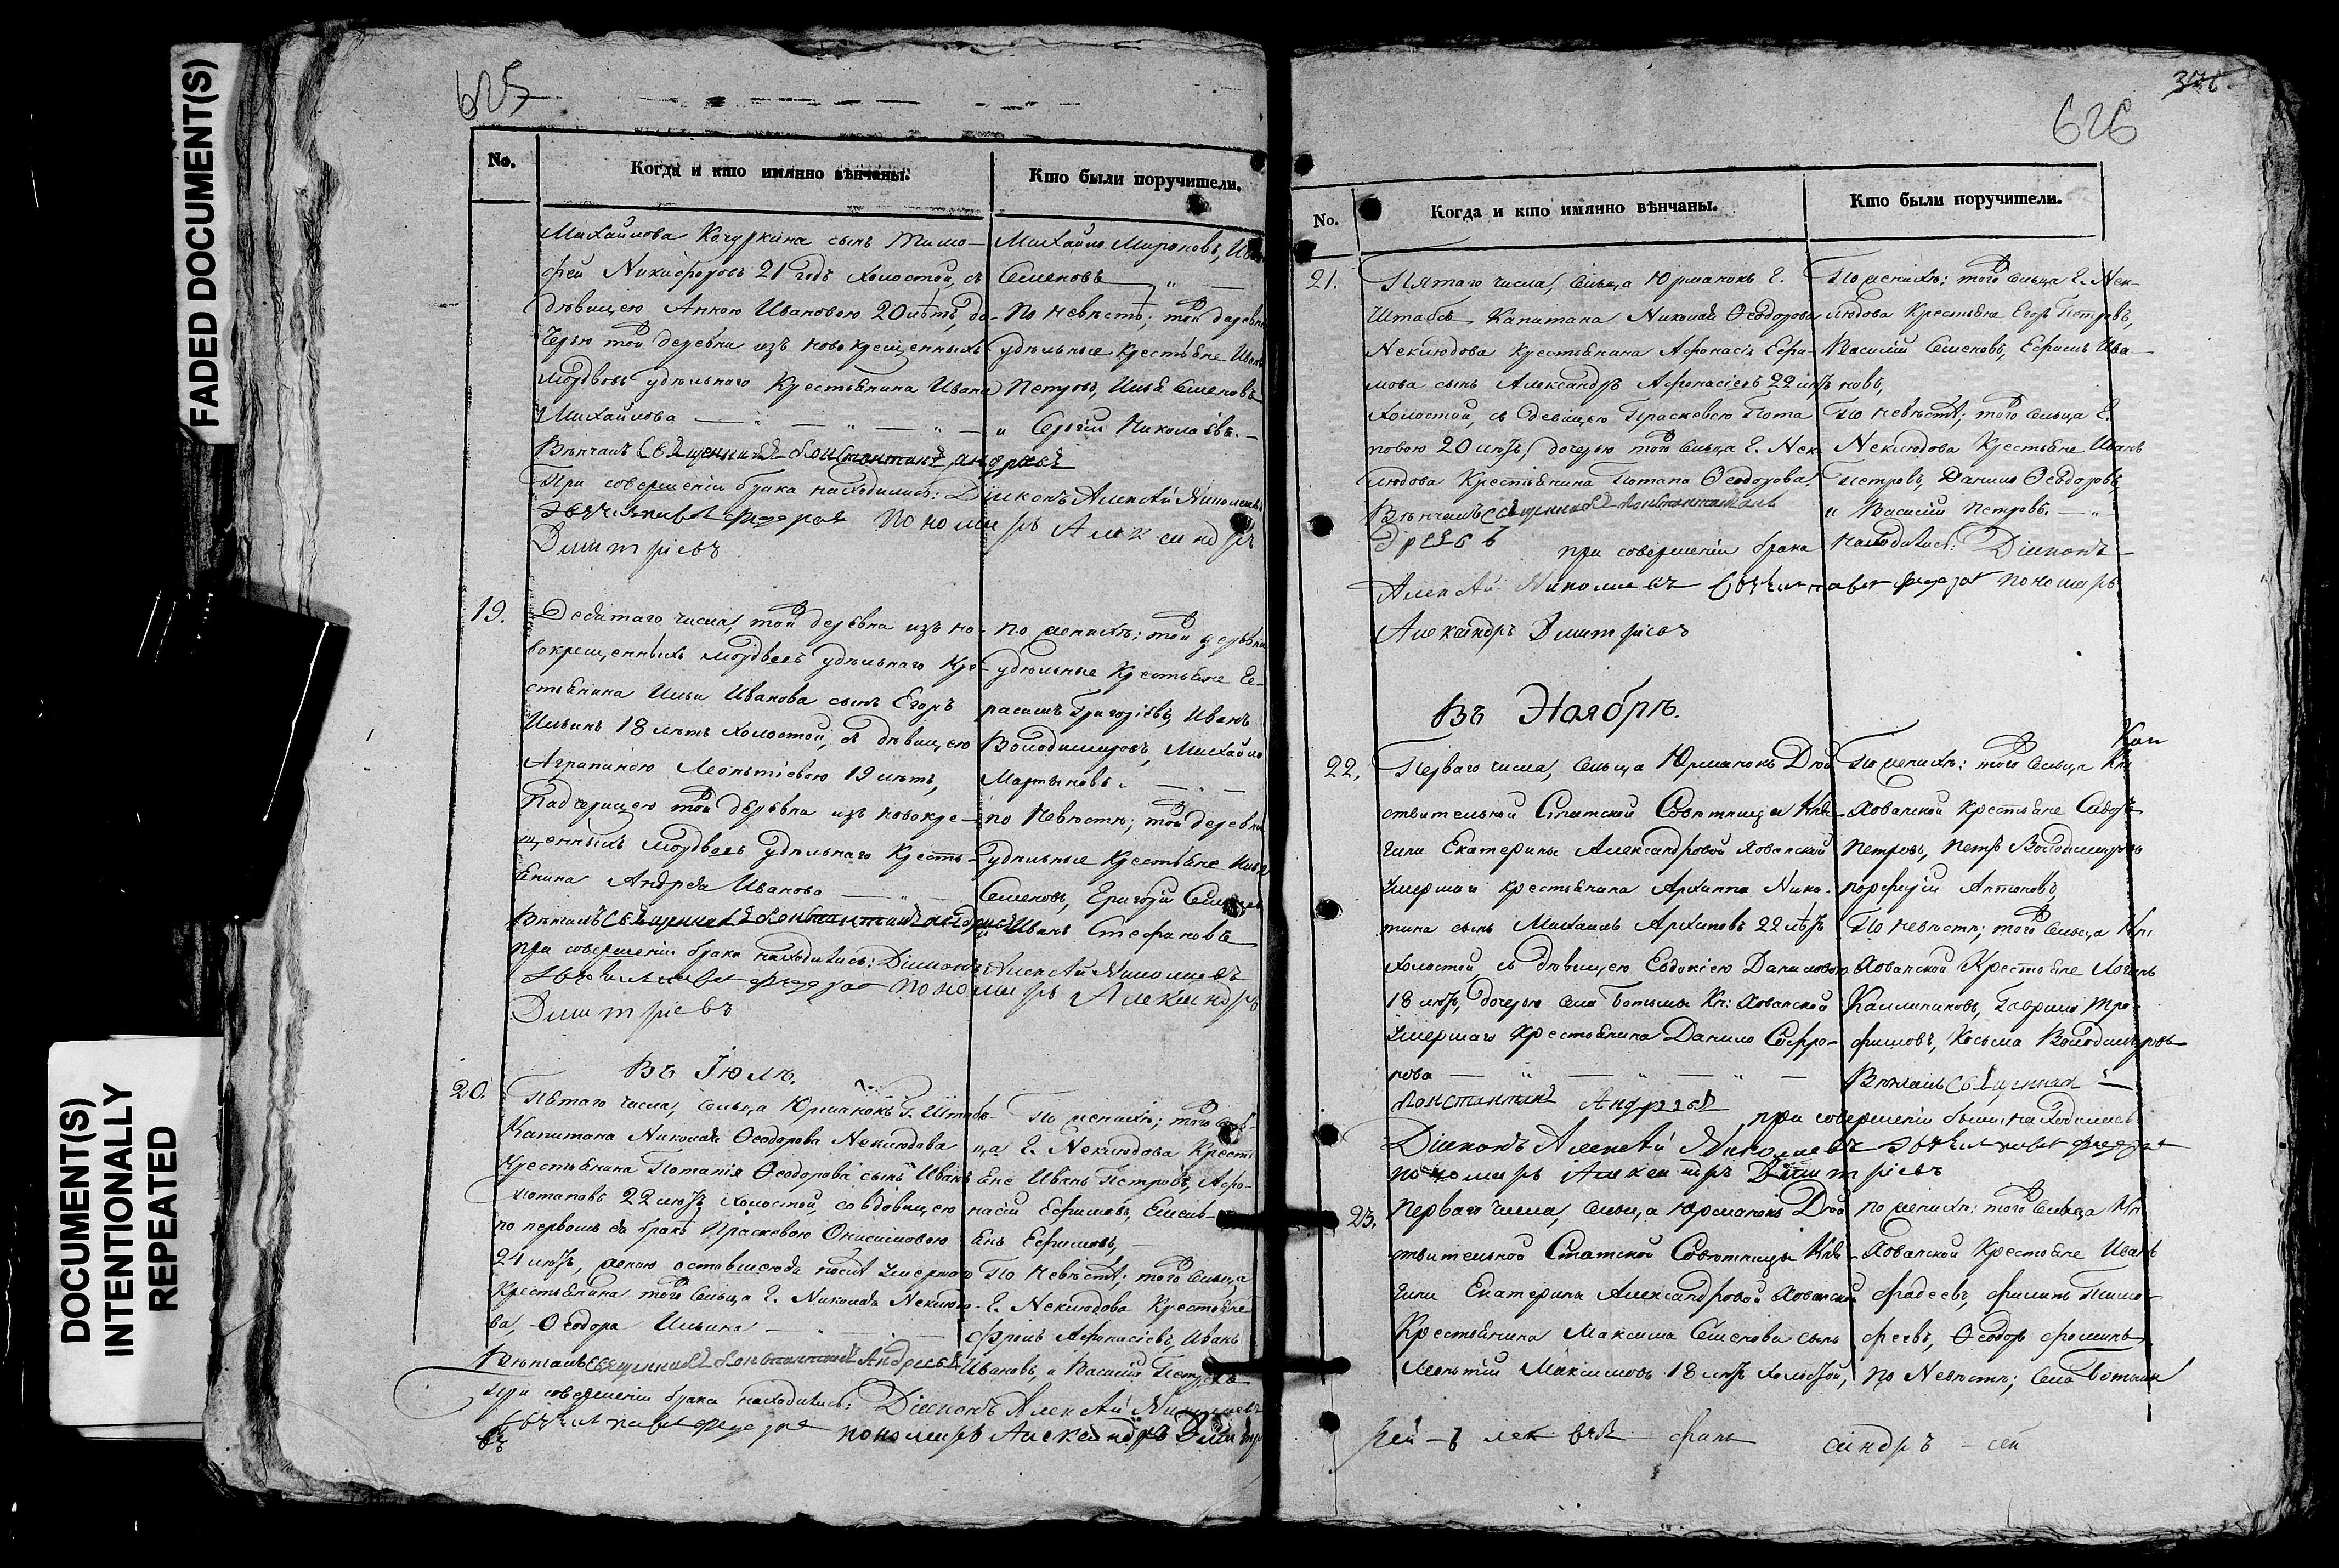 FADED DOCUMENT(S)
DOCUMENT(S)
INTENTIONALLY
REPEATED
625
No.
Когда и кто имянно вѣнчаны.
Кто были поручители.
Михайлова Кочуркина сынъ Тимо-
фей Никифоровъ 21 годъ холостой, съ
дѣвицею Анною Ивановою 20 лѣтъ, до-
черью той деревни изъ новокрещенныхъ
мордовъ удѣльнаго Крестьянина Ивана
Михайлова
Вѣнчалъ Священникъ Константинъ Андреевъ
При совершеніи брака находились: Діаконъ Алексѣй Николаевъ
пономарь Александръ
Димитріевъ
Михайло Мироновъ, Иванъ
Семеновъ
По невѣстѣ; той деревни
удѣльные Крестьяне Иванъ
Петровъ, Илья Семеновъ
и Сергѣй Николаевъ.
19.
Десятаго числа, той деревни изъ но-
вокрещенныхъ мордвевъ удѣльнаго Кре-
стьянина Ильи Иванова сынъ Егоръ
Ильинъ 18 лѣтъ холостой, съ дѣвицею
Аграпиною Леонтіевою 19 лѣтъ,
Падчерицею той деревни изъ новокре-
щенныхъ мордвевъ удѣльнаго Кресть-
янина Андрея Иванова
Вѣнчалъ Священникъ Константинъ Андреевъ
при совершеніи брака находились: Діаконъ Алексѣй Николаевъ
пономарь Александръ
Димитріевъ
по женихѣ; той деревни
удѣльные Крестьяне Ге-
расимъ Григорьевъ, Иванъ
Володимировъ, Михайло
Мартыновъ.
по Невѣстѣ; той деревни
удѣльные Крестьяне Илья
Семеновъ, Григорій Семеновъ
и Иванъ Стефановъ
Въ Іюлѣ.
20.
Пятаго числа, сельца Юрманокъ Г. Штабсъ-
Капитана Николая Ѳеодорова Неклюдова
Крестьянина Потапія Ѳеодорова сынъ Иванъ
Потаповъ 22 лѣтъ холостой, со вдовицею
по первомъ бракѣ Праскевою Онисимовою
24 лѣтъ, женою оставшеюся послѣ умершаго
Крестьянина того Сельца Г. Николая Неклюдо-
ва, Ѳеодора Ильина
Вѣнчалъ Священникъ Константинъ Андреевъ
При совершеніи брака находились: Діаконъ Алексѣй Николаевъ
пономарь Александръ Димитр
По женихѣ; того сель-
ца Г. Неклюдова Кресть
яне Иванъ Петровъ, Афо-
насій Ефимовъ, Емель-
янъ Ефимовъ,
По Невѣстѣ; того Сельца
Г. Неклюдова Крестьяне
Афонасіевъ, Иванъ
Ивановъ, и Василій Петровъ
626
No.
Когда и кто имянно вѣнчаны.
Кто были поручители.
21.
Пятаго числа, Сельца Юрманокъ Г.
Штабсъ Капитана Николая Ѳеодорова
Неклюдова Крестьянина Афонасія Ефи-
мова сынъ Александръ Афонасіевъ 22 лѣтъ
Холостой, съ Девицею Праскевою Пота
повою 20 лѣтъ, дочерью того Сельца Г. Нек
людова Крестьянина Потапа Ѳеодорова.
Вѣнчалъ Священникъ Константинъ Ан
дреевъ при совершеніи брака находились: Діаконъ
Алексѣй Николаевъ пономарь
Александръ Димитріевъ
По женихѣ: того Сельца Г. Нек-
людова Крестьяне Егоръ Петровъ,
Василій Семеновъ, Ефимъ Ива-
новъ,
По невѣстѣ; того Сельца Г.
Неклюдова Крестьяне Иванъ
Петровъ, Данило Ѳеодоровъ,
и Василій Петровъ.
Въ Ноябрѣ.
22.
Перваго числа, Сельца Юрманокъ Дѣй
ствительной Статской Совѣтницы Кня-
гини Екатерины Александровой Хованской
Умершаго Крестьянина Архиппа Ники-
тина сынъ Михаилъ Архиповъ 22 лѣтъ
холостой, съ дѣвицею Евдокіею Даниловою
18 лѣтъ, Дочерью села Ботьмы Кн: Хованской
Умершаго Крестьянина Данилы Софро-
нова
Константинъ Андреевъ при совершеніи были находились
Діаконъ Алексѣй Николаевъ
пономарь Александръ Димитріевъ
По женихѣ: того Сельца Кн
Хованской Крестьяне Сидоръ
Петровъ, Петръ Володимировъ
порфирій Антоновъ
По невѣстѣ; того Сельца Кн:
Хованской Крестьяне Логинъ
Калинниковъ, Гаврило Тро-
фимовъ, Косьма Володимировъ
Вѣнчалъ Священникъ
23.
Перваго числа, Сельца Юрманокъ Дѣй
ствительной Статской Совѣтницы Кня-
гини Екатерины Александровой Хованской
Крестьянина Максима Семенова сынъ
Леонтій Максимовъ 18 лѣтъ холостой,
по женихѣ: того Сельца Кн
Хованской Крестьяне Иванъ
Фадеевъ, Филипъ Тимо-
феевъ, Ѳеодоръ Фоминъ
по Невѣстѣ; Села Ботьмы